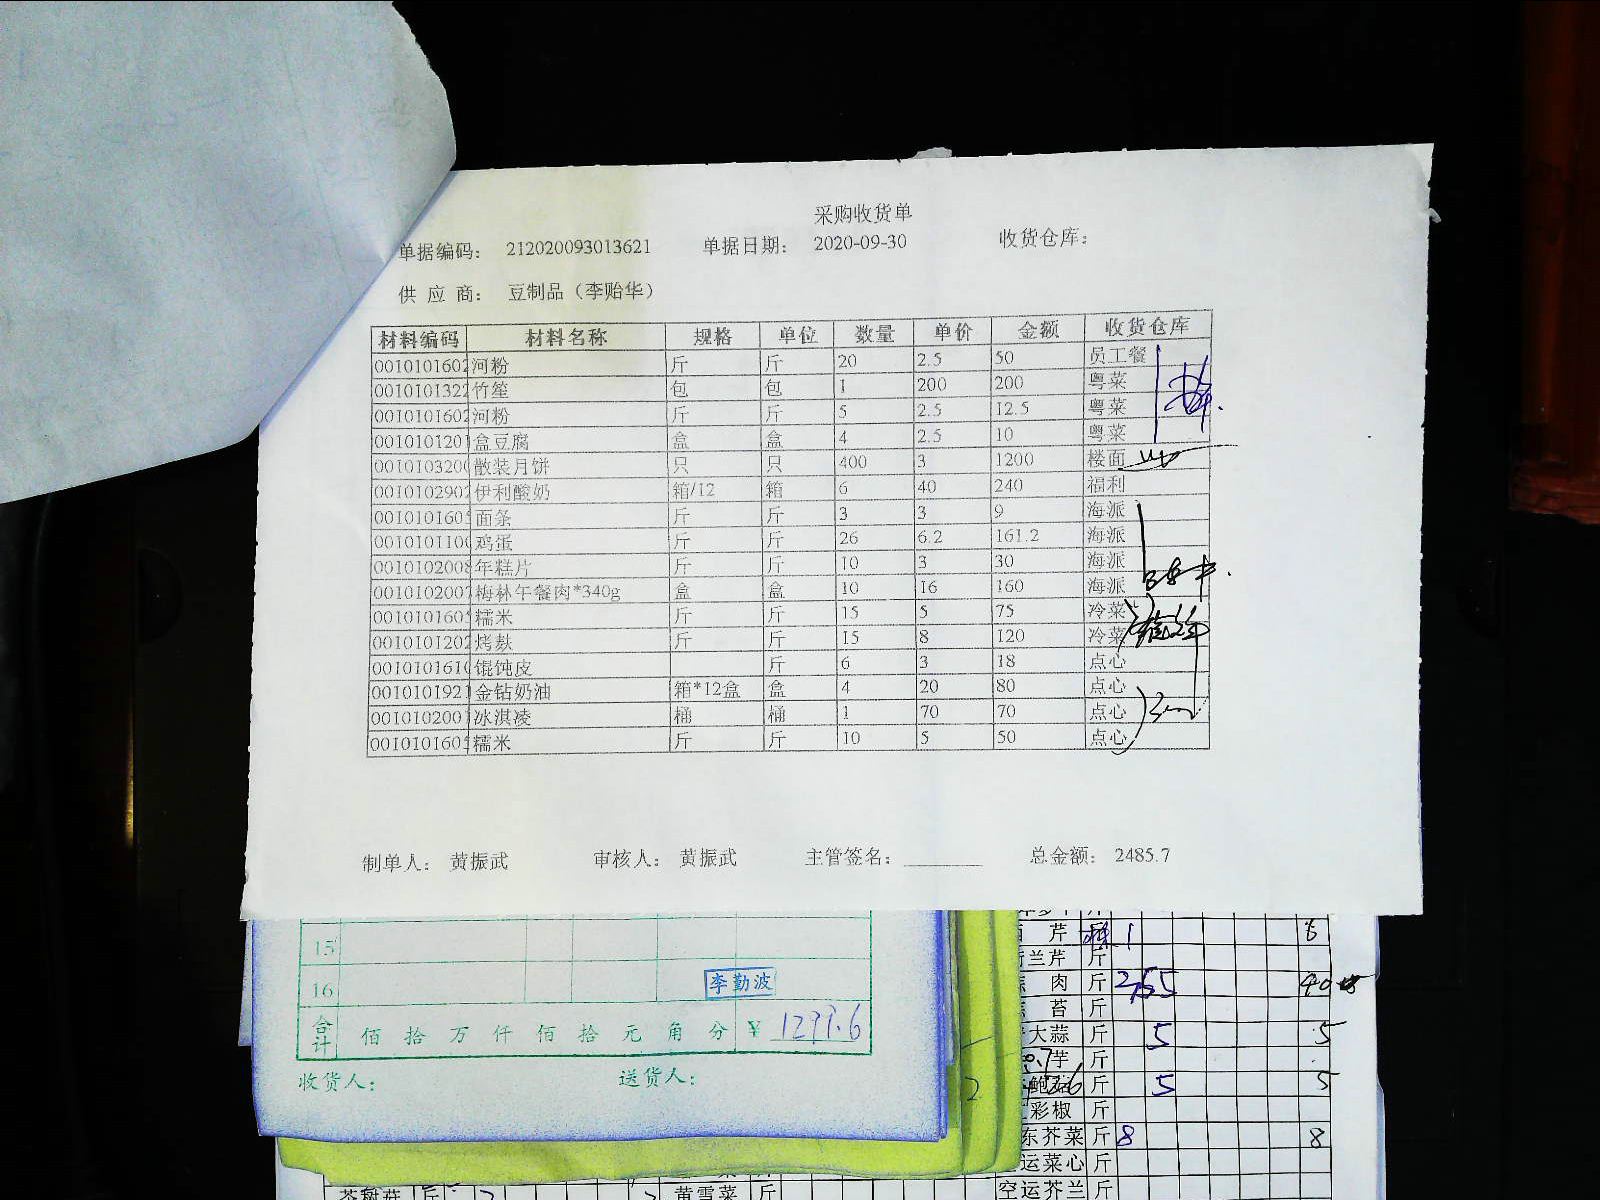 采购收货单
单据编码: 212020093013621 单据日期: 2020-09-30 收货仓库:
供应商: 豆制品(李贻华)
材料编码 材料名称 规格 单位 数量 单价 金额 收货仓库
0010101602 河粉 斤 斤 20 2.5 50 员工餐
0010101322 竹笙 包 包 1 200 200 粤菜
0010101602 河粉 斤 斤 5 2.5 12.5 粤菜
0010101201 盒豆腐 盒 盒 4 2.5 10 粤菜
0010103200 散装月饼 只 只 400 3 1200 楼面
0010102902 伊利酸奶 箱/12 箱 6 40 240 福利
001010160 面条 斤 斤 3 3 9 海派
001010110 鸡蛋 斤 斤 26 6.2 161.2 海派
0010102008 年糕片 斤 斤 10 3 30 海派
001010200 梅林午餐肉*340g 盒 盒 10 16 160 海派
001010160 糯米 斤 斤 15 5 75 冷菜
0010101202 烤麸 斤 斤 15 8 120 冷菜
001010161 馄饨皮 斤 6 3 18 点心
0010101921 金钻奶油 箱*12盒 盒 4 20 80 点心
001010200 冰淇凌 桶 桶 1 70 70 点心
001010160 糯米 斤 斤 10 5 50 点心
制单人: 黄振武 审核人: 黄振武 主管签名: 总金额: 2485.7
15
16 李勤波
合计 佰 拾 万 仟 佰 拾 元 角 分 ¥
收货人: 送货人:
芹 1 6
兰芹 斤
肉 斤
苔 斤
大蒜 斤 5 5
芋 斤
斤 5 5
彩椒 斤
东芥菜 斤 8 8
运菜心 斤
黄雪菜 斤 空运芥兰 斤